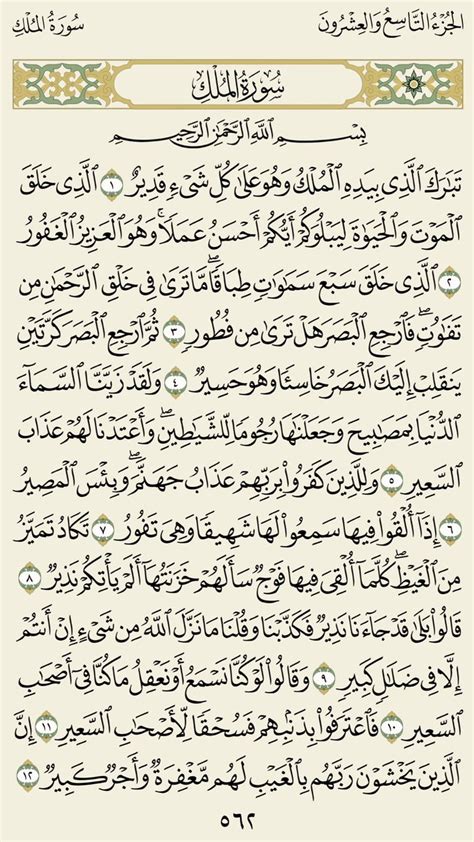 الجُزْءُ التَّاسِعُ وَالعِشْرُونَ سُورَةُ المُلْكِ
سُورَةُ المُلْكِ
بِسْمِ ٱللَّهِ ٱلرَّحْمَٰنِ ٱلرَّحِيمِ
تَبَٰرَكَ ٱلَّذِى بِيَدِهِ ٱلْمُلْكُ وَهُوَ عَلَىٰ كُلِّ شَىْءٍ قَدِيرٌ ١ ٱلَّذِى خَلَقَ
ٱلْمَوْتَ وَٱلْحَيَوٰةَ لِيَبْلُوَكُمْ أَيُّكُمْ أَحْسَنُ عَمَلًا ۚ وَهُوَ ٱلْعَزِيزُ ٱلْغَفُورُ
٢ ٱلَّذِى خَلَقَ سَبْعَ سَمَٰوَٰتٍ طِبَاقًا ۖ مَّا تَرَىٰ فِى خَلْقِ ٱلرَّحْمَٰنِ مِن
تَفَٰوُتٍ ۖ فَٱرْجِعِ ٱلْبَصَرَ هَلْ تَرَىٰ مِن فُطُورٍ ٣ ثُمَّ ٱرْجِعِ ٱلْبَصَرَ كَرَّتَيْنِ
يَنقَلِبْ إِلَيْكَ ٱلْبَصَرُ خَاسِئًا وَهُوَ حَسِيرٌ ٤ وَلَقَدْ زَيَّنَّا ٱلسَّمَآءَ
ٱلدُّنْيَا بِمَصَٰبِيحَ وَجَعَلْنَٰهَا رُجُومًا لِّلشَّيَٰطِينِ ۖ وَأَعْتَدْنَا لَهُمْ عَذَابَ
ٱلسَّعِيرِ ٥ وَلِلَّذِينَ كَفَرُوا۟ بِرَبِّهِمْ عَذَابُ جَهَنَّمَ ۖ وَبِئْسَ ٱلْمَصِيرُ
٦ إِذَآ أُلْقُوا۟ فِيهَا سَمِعُوا۟ لَهَا شَهِيقًا وَهِىَ تَفُورُ ٧ تَكَادُ تَمَيَّزُ
مِنَ ٱلْغَيْظِ ۖ كُلَّمَآ أُلْقِىَ فِيهَا فَوْجٌ سَأَلَهُمْ خَزَنَتُهَآ أَلَمْ يَأْتِكُمْ نَذِيرٌ ٨
قَالُوا۟ بَلَىٰ قَدْ جَآءَنَا نَذِيرٌ فَكَذَّبْنَا وَقُلْنَا مَا نَزَّلَ ٱللَّهُ مِن شَىْءٍ إِنْ أَنتُمْ
إِلَّا فِى ضَلَٰلٍ كَبِيرٍ ٩ وَقَالُوا۟ لَوْ كُنَّا نَسْمَعُ أَوْ نَعْقِلُ مَا كُنَّا فِىٓ أَصْحَٰبِ
ٱلسَّعِيرِ ١٠ فَٱعْتَرَفُوا۟ بِذَنۢبِهِمْ فَسُحْقًا لِّأَصْحَٰبِ ٱلسَّعِيرِ ١١ إِنَّ
ٱلَّذِينَ يَخْشَوْنَ رَبَّهُم بِٱلْغَيْبِ لَهُم مَّغْفِرَةٌ وَأَجْرٌ كَبِيرٌ ١٢
٥٦٢